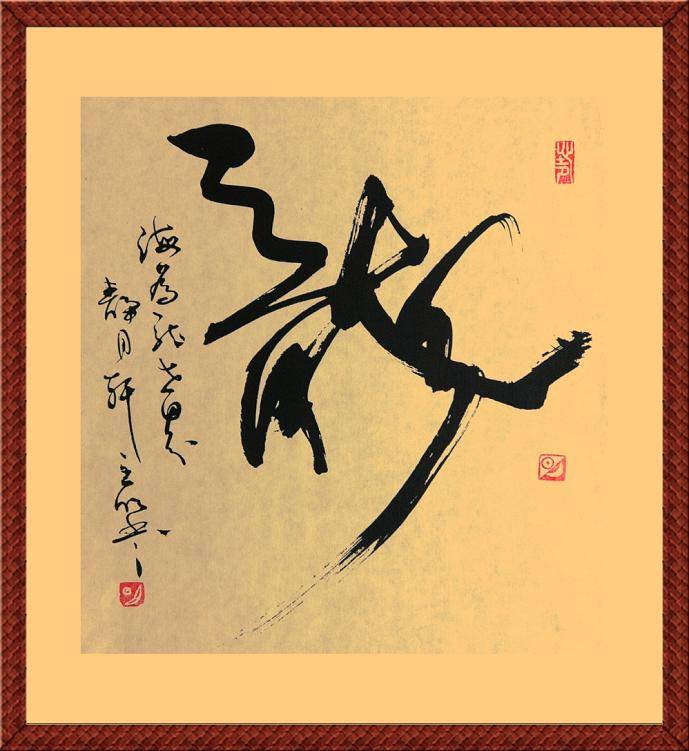 龍
海為龍世界
靜月軒主